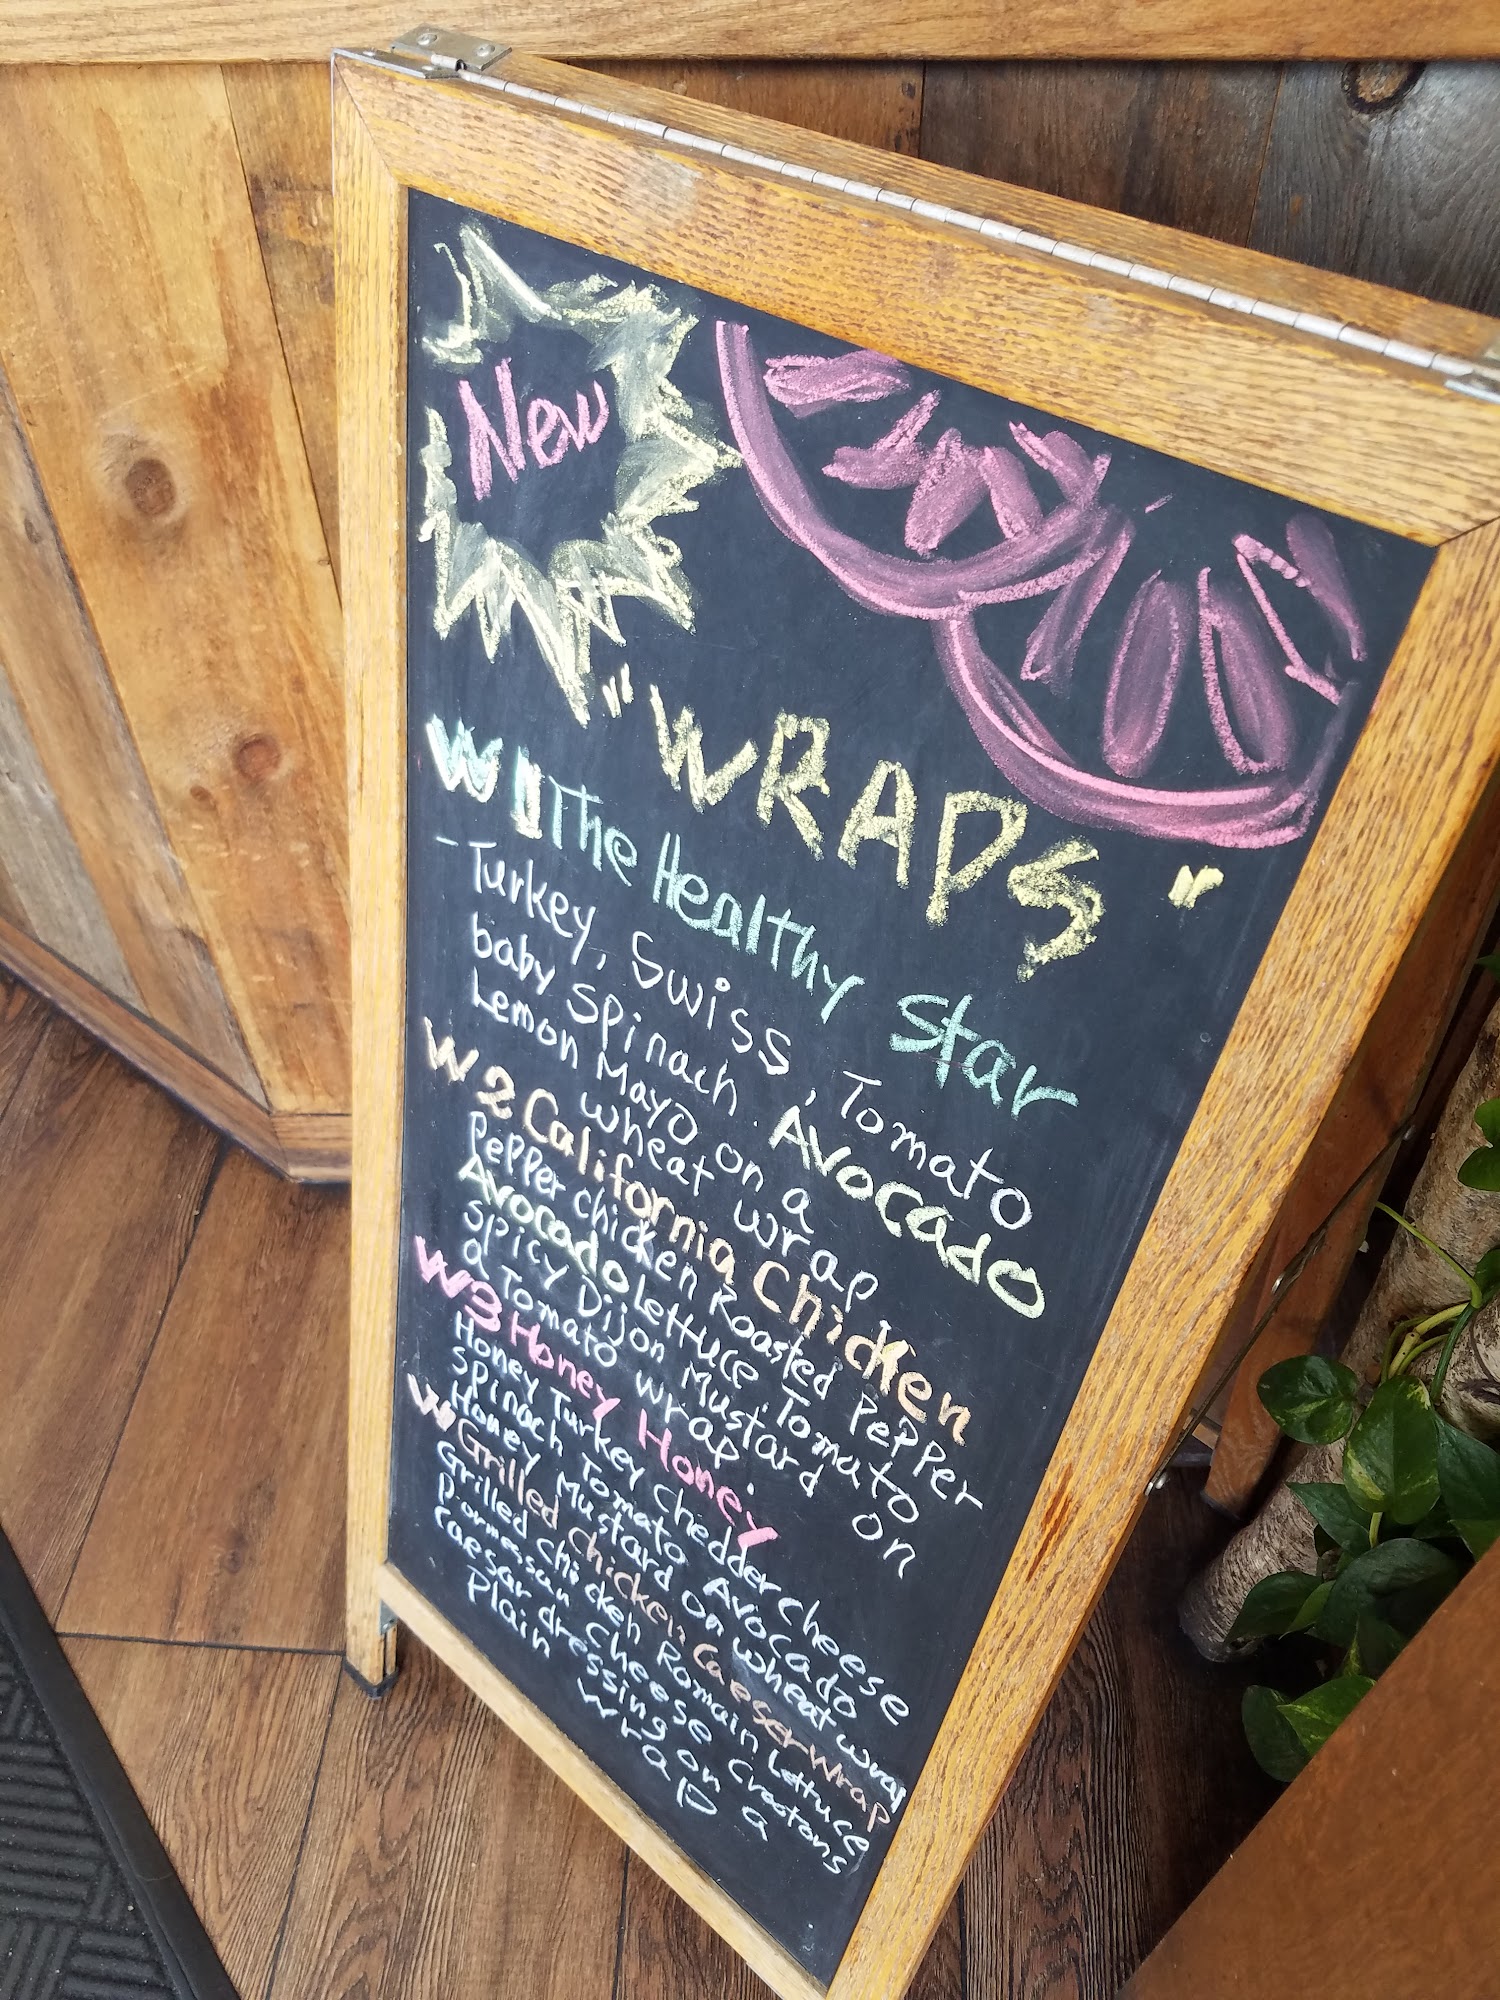 New
"WRAPS"
W1 The Healthy Star
- Turkey, Swiss, Tomato
baby spinach. Avocado
Lemon Mayo on a
wheat wrap
W2 California Chicken
Pepper chicken Roasted PePPer
Avocado Lettuce Tomato
Spicy Dijon Mustard on
a Tomato wrap.
W3 Honey Honey
Honey Turkey Chedder cheese
Spinach Tomato Avocado
Honey Mustard on wheat wrap
W Grilled Chicken Caeser wrap
Grilled chicken Romain Lettuce
Parmessan Cheese Croutons
Caesar dressing on a
Plain wrap